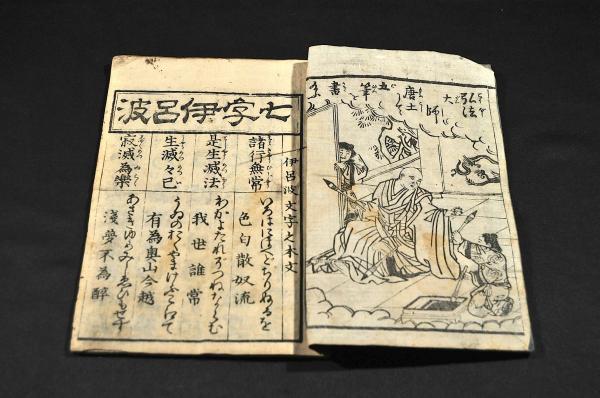 弘法
大師
唐土
五筆書
七字伊呂波
伊呂波文字之本文
諸行無常
いろはにほへとちりぬるを
色匂散奴流
是生滅法
わかよたれそつねならむ
我世誰常
生滅々已
うゐのおくやまけふこえて
有為奥山今越
寂滅為樂
あさきゆめみしゑひもせす
淺夢不為醉